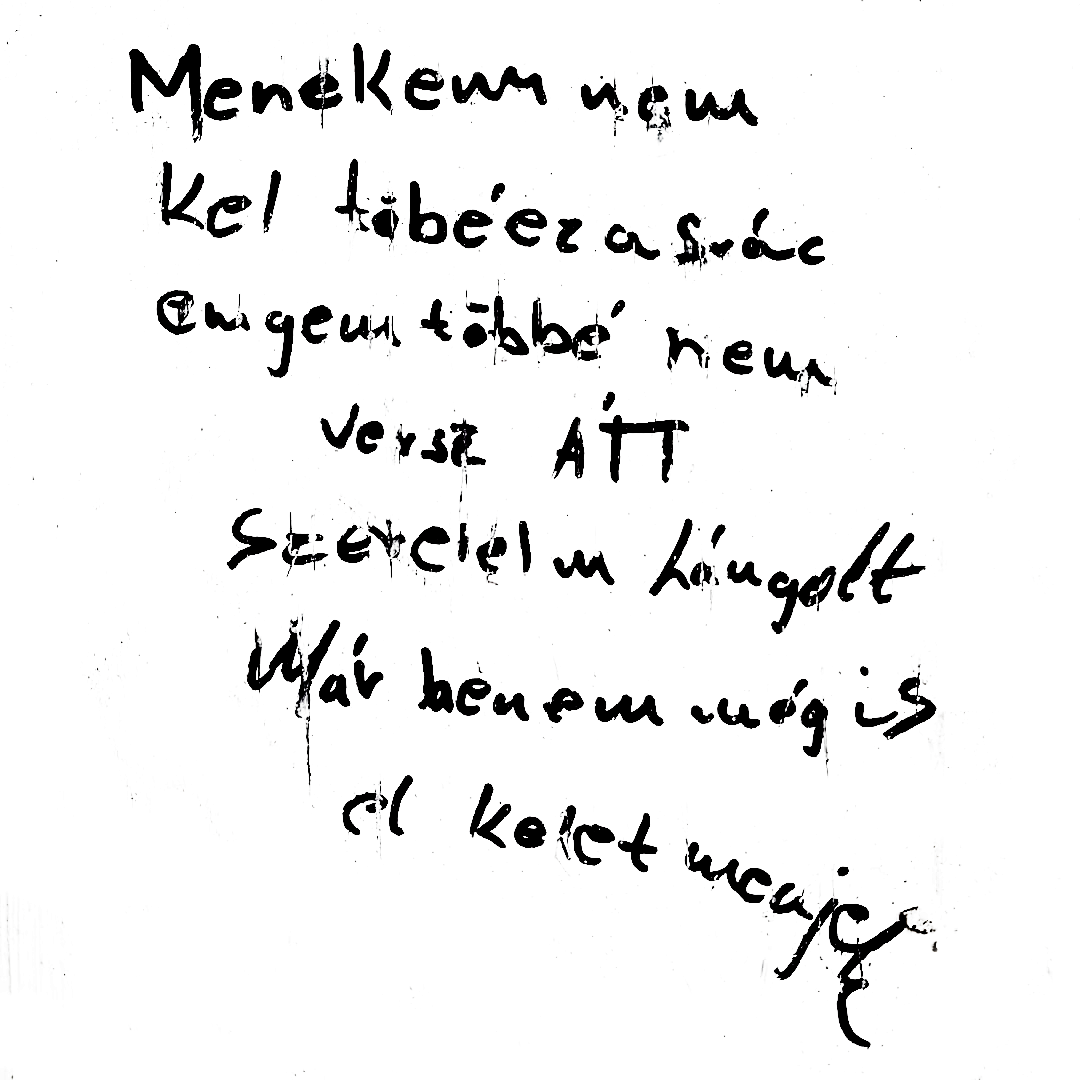 Menekem nem
Kel töbéez a srác
emgem többé nem
versz ÁTT
Szerelelm Lángolt
Már benem mégis
el kelet menje